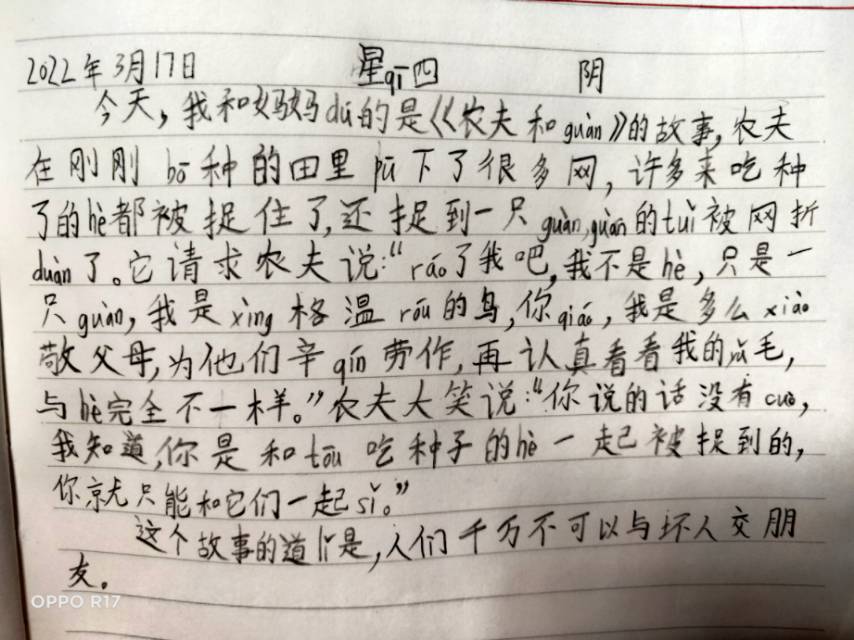 2022年3月17日 星qī四 阴
今天,我和妈妈dú的是《农夫和guàn》的故事,农夫
在刚刚bō种的田里pū下了很多网,许多来吃种
了的hè都被捉住了,还捉到一只guàn,guàn的tuǐ被网折
duàn了。它请求农夫说:“ráo了我吧,我不是hè,只是一
只guàn,我是xìng格温róu的鸟,你qiáo,我是多么xiào
敬父母,为他们辛qín劳作,再认真看看我的羽毛,
与hè完全不一样。”农夫大笑说:“你说的话没有cuò,
我知道,你是和tōu吃种子的hè一起被捉到的,
你就只能和它们一起sǐ。”
这个故事的道lǐ是,人们千万不可以与坏人交朋
友。
OPPO R17